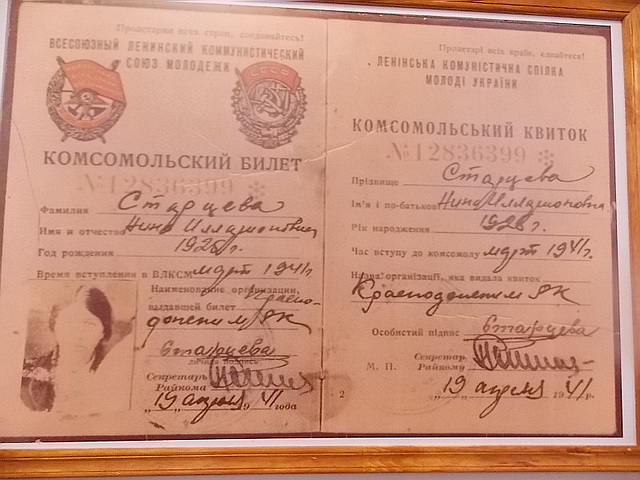 Пролетарии всех стран, соединяйтесь!
ВСЕСОЮЗНЫЙ ЛЕНИНСКИЙ КОММУНИСТИЧЕСКИЙ
СОЮЗ МОЛОДЕЖИ
СССР
КОМСОМОЛЬСКИЙ БИЛЕТ
№12836399 *
Фамилия Старцева
Имя и отчество Нина Иллларионовна
Год рождения 1925 г.
Время вступления в ВЛКСМ март 1941 г
Наименование организации,
выдавшей билет Красно-
донским РК
Старцева
личная подпись
Секретарь
Райкома
„19" апреля 1941 года
Пролетарі всіх країн, єднайтеся!
ЛЕНІНСЬКА КОМУНІСТИЧНА СПІЛКА
МОЛОДІ УКРАЇНИ
КОМСОМОЛЬСЬКИЙ КВИТОК
№12836399 *
Прізвище Старцева
Ім'я і по-батькові Нина
Рік народження 1925 г.
Час вступу до комсомолу март 1941 г.
Назва організації, яка видала квиток
Краснодонским РК
Особистий підпис Старцева
М. П. Секретар
Райкому
19 апреля 1941 р.
2